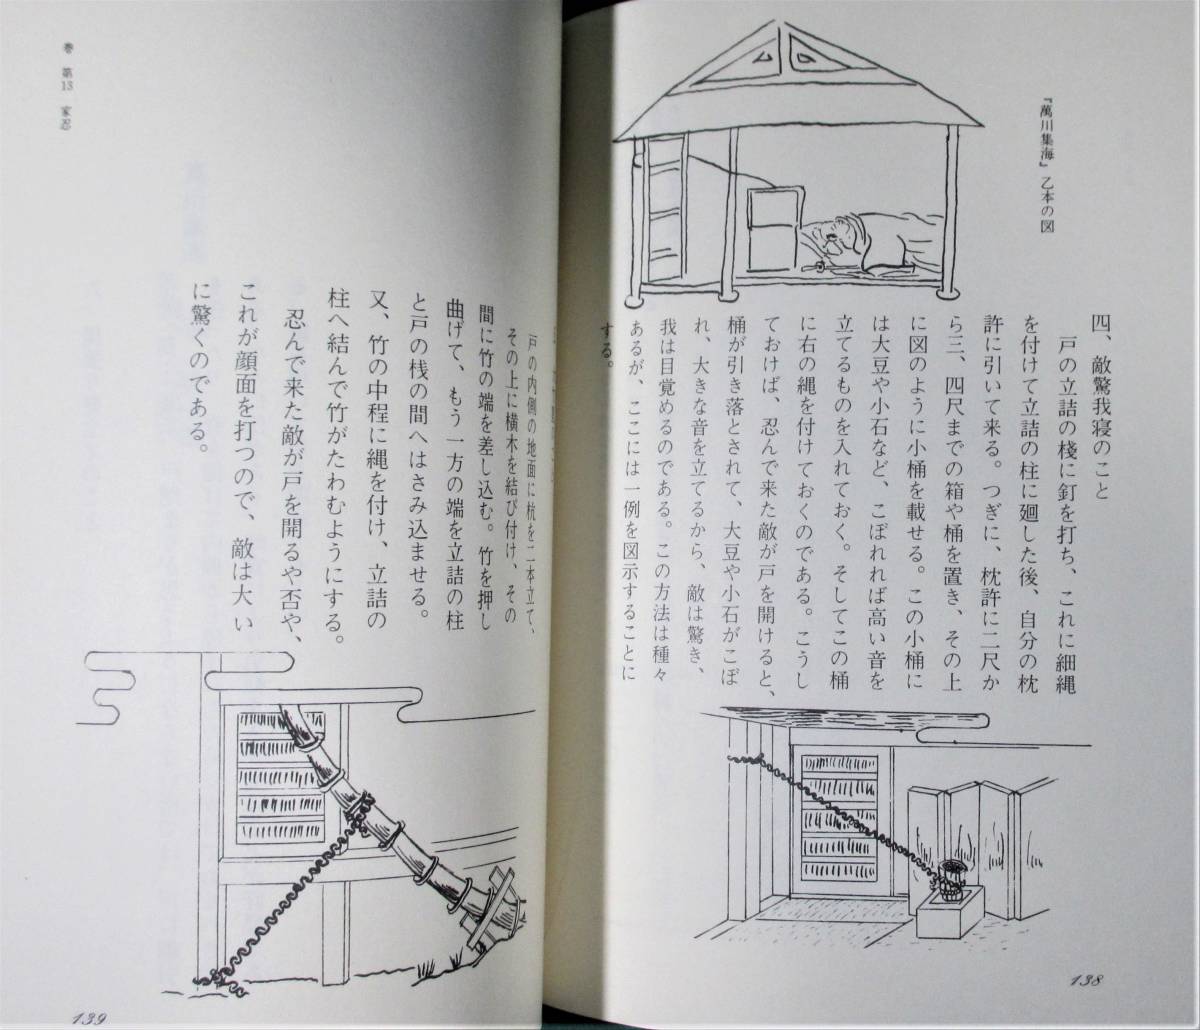 『萬川集海』乙本の図
四、敵驚我寝のこと
戸の立詰の棧に釘を打ち、これに細縄
を付けて立詰の柱に廻した後、自分の枕
許に引いて来る。つぎに、枕許に二尺か
ら三、四尺までの箱や桶を置き、その上
に図のように小桶を載せる。この小桶に
は大豆や小石など、こぼれれば高い音を
立てるものを入れておく。そしてこの桶
に右の縄を付けておくのである。こうし
ておけば、忍んで来た敵が戸を開けると、
桶が引き落とされて、大豆や小石がこぼ
れ、大きな音を立てるから、敵は驚き、
我は目覚めるのである。この方法は種々
あるが、ここには一例を図示することに
する。
138
戸の内側の地面に杭を二本立て、
その上に横木を結び付け、その
間に竹の端を差し込む。竹を押し
曲げて、もう一方の端を立詰の柱
と戸の桟の間へはさみ込ませる。
又、竹の中程に縄を付け、立詰の
柱へ結んで竹がたわむようにする。
忍んで来た敵が戸を開るや否や、
これが顔面を打つので、敵は大い
に驚くのである。
巻 第13 家忍
139